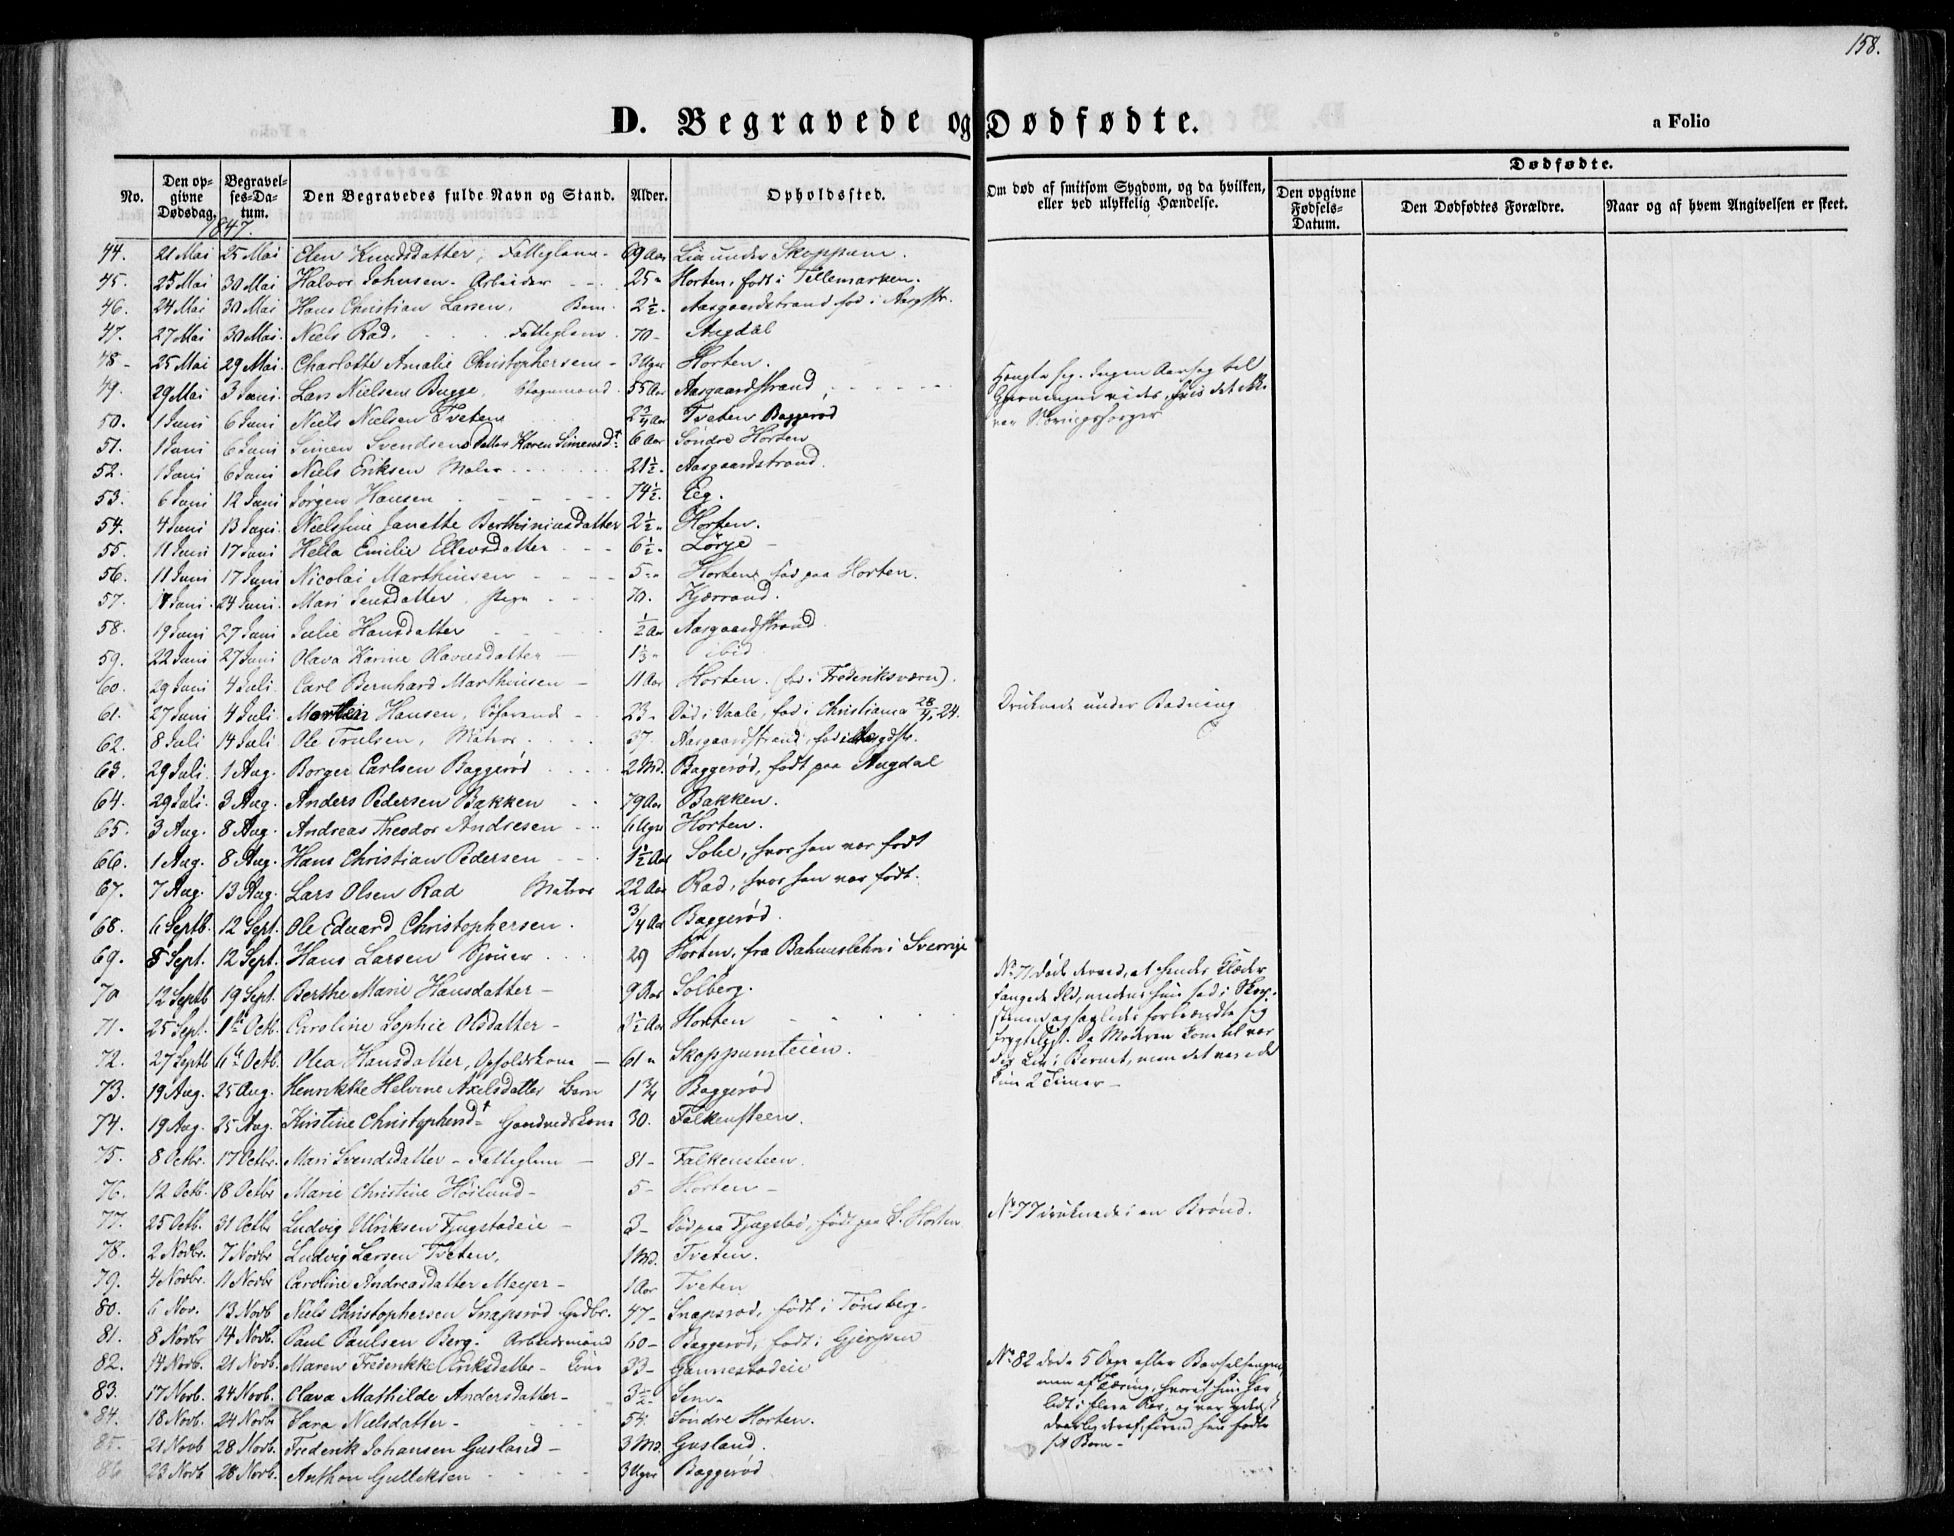 158.
D. Begravede og Dødfødte.
a Folio
No.
Den opgivne Dødsdag.
Begravelses-Datum.
Den Begravedes fulde Navn og Stand.
Alder.
Opholdssted.
Om død af smitsom Sygdom, og da hvilken, eller ved ulykkelig Hændelse.
Dødfødte.
Den opgivne Fødsels-Datum.
Den Dødfødtes Forældre.
Naar og af hvem Angivelsen er skeet.
1847.
44. 21 Mai 25 Mai Elen Knudsdatter, Fatteglem 69 Aar Lia under Skoppum.
45. 25 Mai 30 Mai Halvor Johnsen. Arbeider 25 " Horten, født i Tellemarken.
46. 24 Mai 30 Mai Hans Christian Larsen, Barn. 2½ - Aasgaardstrand fød i Aasgstr.
47. 27 Mai 30 Mai. Niels Rad. Fatteglem 70 - Augdal
48 - 25 Mai 29 Mai. Charlotte Amalie Christophersen - 3 Uger Horten.
49. 29 Mai 3 Juni. Lars Nielsen Bugge, 55 Aar Aasgaardstrand, Hængte sig. Ingen Aarsag til Gjerningen vides, hvis det ikke var Næringssorger
50. 1 Juni 6 Juni Niels Nielsen Tveten 2¾ Aar Tveten Baggerød
51. 1 Juni 6 Juni Simen Svendsens datter Karen Simensdt. 6 Aar Søndre Horten
52. 1 Juni 6 Juni Niels Eriksen Maler 21½ - Aasgaardstrand.
53. 6 Juni 12 Juni Jørgen Hansen 74½. Eeg.
54. 4 Juni 13 Juni. Nielsine Janette Berthiniusdatter 2½ " Horten.
55. 11 Juni 17 Juni Hella Emilie Ellevsdatter 6½ " Lørge -
56. 11 Juni 17 Juni Nicolai Marthinsen 5 - " Horten, fød paa Horten.
57. 17 Juni. 24 Juni. Mari Jensdatter. 70. Kjærrand.
58. 19 Juni 27 Juni Julie Hansdatter ½ Aar Aasgaardstrand
59. 22 Juni 27 Juni Olava Karine Olavusdatter 1⅓ " ibid
60. 29 Juni 4 Juli. Carl Bernhard Marthinsen - 11 Aar Horten. (fød i Frederiksværn).
61. 27 Juni 4 Juli. Martin Hansen, Søfarende 23 - Død i Vaale, fød i Christiania 28/4 24. Druknede under Badning
62. 8 Juli 14 Juli Ole Trulsen, Matros 37 Aasgaardstrand, fød i Aasgdstr.
63. 29 Juli. 1 Aug. Borger Carlsen Baggerød 2 Md. Baggerød, født paa Augdal
64. 29 Juli. 3 Aug. Anders Pedersen Bakken 79 Aar Bakken.
65. 3 Aug. 8 Aug. Andreas Theodor Andresen 6 Uger Horten.
66. 1 Aug. 8 Aug. Hans Christian Pedersen 1½ Aar Solie, hvor han var født
67. 7 Aug. 13 Aug. Lars Olsen Rad Matros 22 Aar Rad, hvor han var født.
68. 6 Septb. 12 Sept. Ole Eduard Christophersen. ¾ Aar Baggerød.
69. 5 Sept. 12 Sept. Hans Larsen Sjøuer 29 Horten, fra Bahuuslehn i Sverrige
70 12 Septb 19 Sept. Berthe Marie Hansdatter - 9 Aar Solberg.
71. 25 Sept. 1te Octb. Caroline Sophie Olsdatter - 2½ Aar Horten
No 71 døde derved, at hendes Klæder fangede Ild, medens hun sad i Skorstenen og saaledes forbrændte sig frygteligt. Da Moderen kom til var der Liv i Barnet, men det varede kun 2 Timer -
72. 27 Septb 6te Octb. Olea Hansdatter, Opholdskone - 61 " Skoppumteien.
73. 19 Aug. 25 Aug. Henrikke Helvine Axelsdatter Barn 1¾ Baggerød
74. 19 Aug. 25 Aug. Kirstine Christophersdt. Gaardmandskone 30. Falkensteen.
75. 8 Octbr. 17 Octbr. Mari Svendsdatter - Fatteglem - 81 - Falkensteen.
76. 12 Octb. 18 Octbr Marie Christine Høslund - 5 - Horten -
77. 25 Octb. 31 Octbr Ludvig Ulriksen Fjugstadeie - 3 - Død paa Fjugstad, født paa S. Horten No 77 druknede i en Brønd.
78. 2 Novbr. 7 Novbr Ludvig Larsen Tveten, 1 Md. Tveten.
79. 4 Novbr. 11 Novbr Caroline Andreasdatter Meyer - 1 Aar Tveten
80. 6 Nov. 13 Novb Niels Christophersen Snapsrød Gdbr. 47 - Snapsrød, født i Tønsberg.
81. 8 Novbr 14 Novb. Paul Paulsen Berg. Arbeidsmand 60 - Baggerød, født i Gjerpen
82. 14 Novb. 21 Novb. Maren Frederikke Eriksdatter - Kone 33 - Gannestadeie No 82 døde 5 Dage efter Barselsengen, men af Tæring, hvoraf hun har lidt i flere Aar, og var yderst daarlig deraf, førend hun fødte sit Barn -
83. 17 Novb. 24 Novb. Olava Mathilde Andersdatter - 3½ - Sem -
84. 18 Novb. 24 Novbr Sara Nielsdatter - 54. Søndre Horten.
85. 21 Novb 28 Novb. Frederik Johansen Gusland - 3 Md. Gusland.
86 23 Novb 28 Novb. Anthon Gulliksen 3 Uger Baggerød